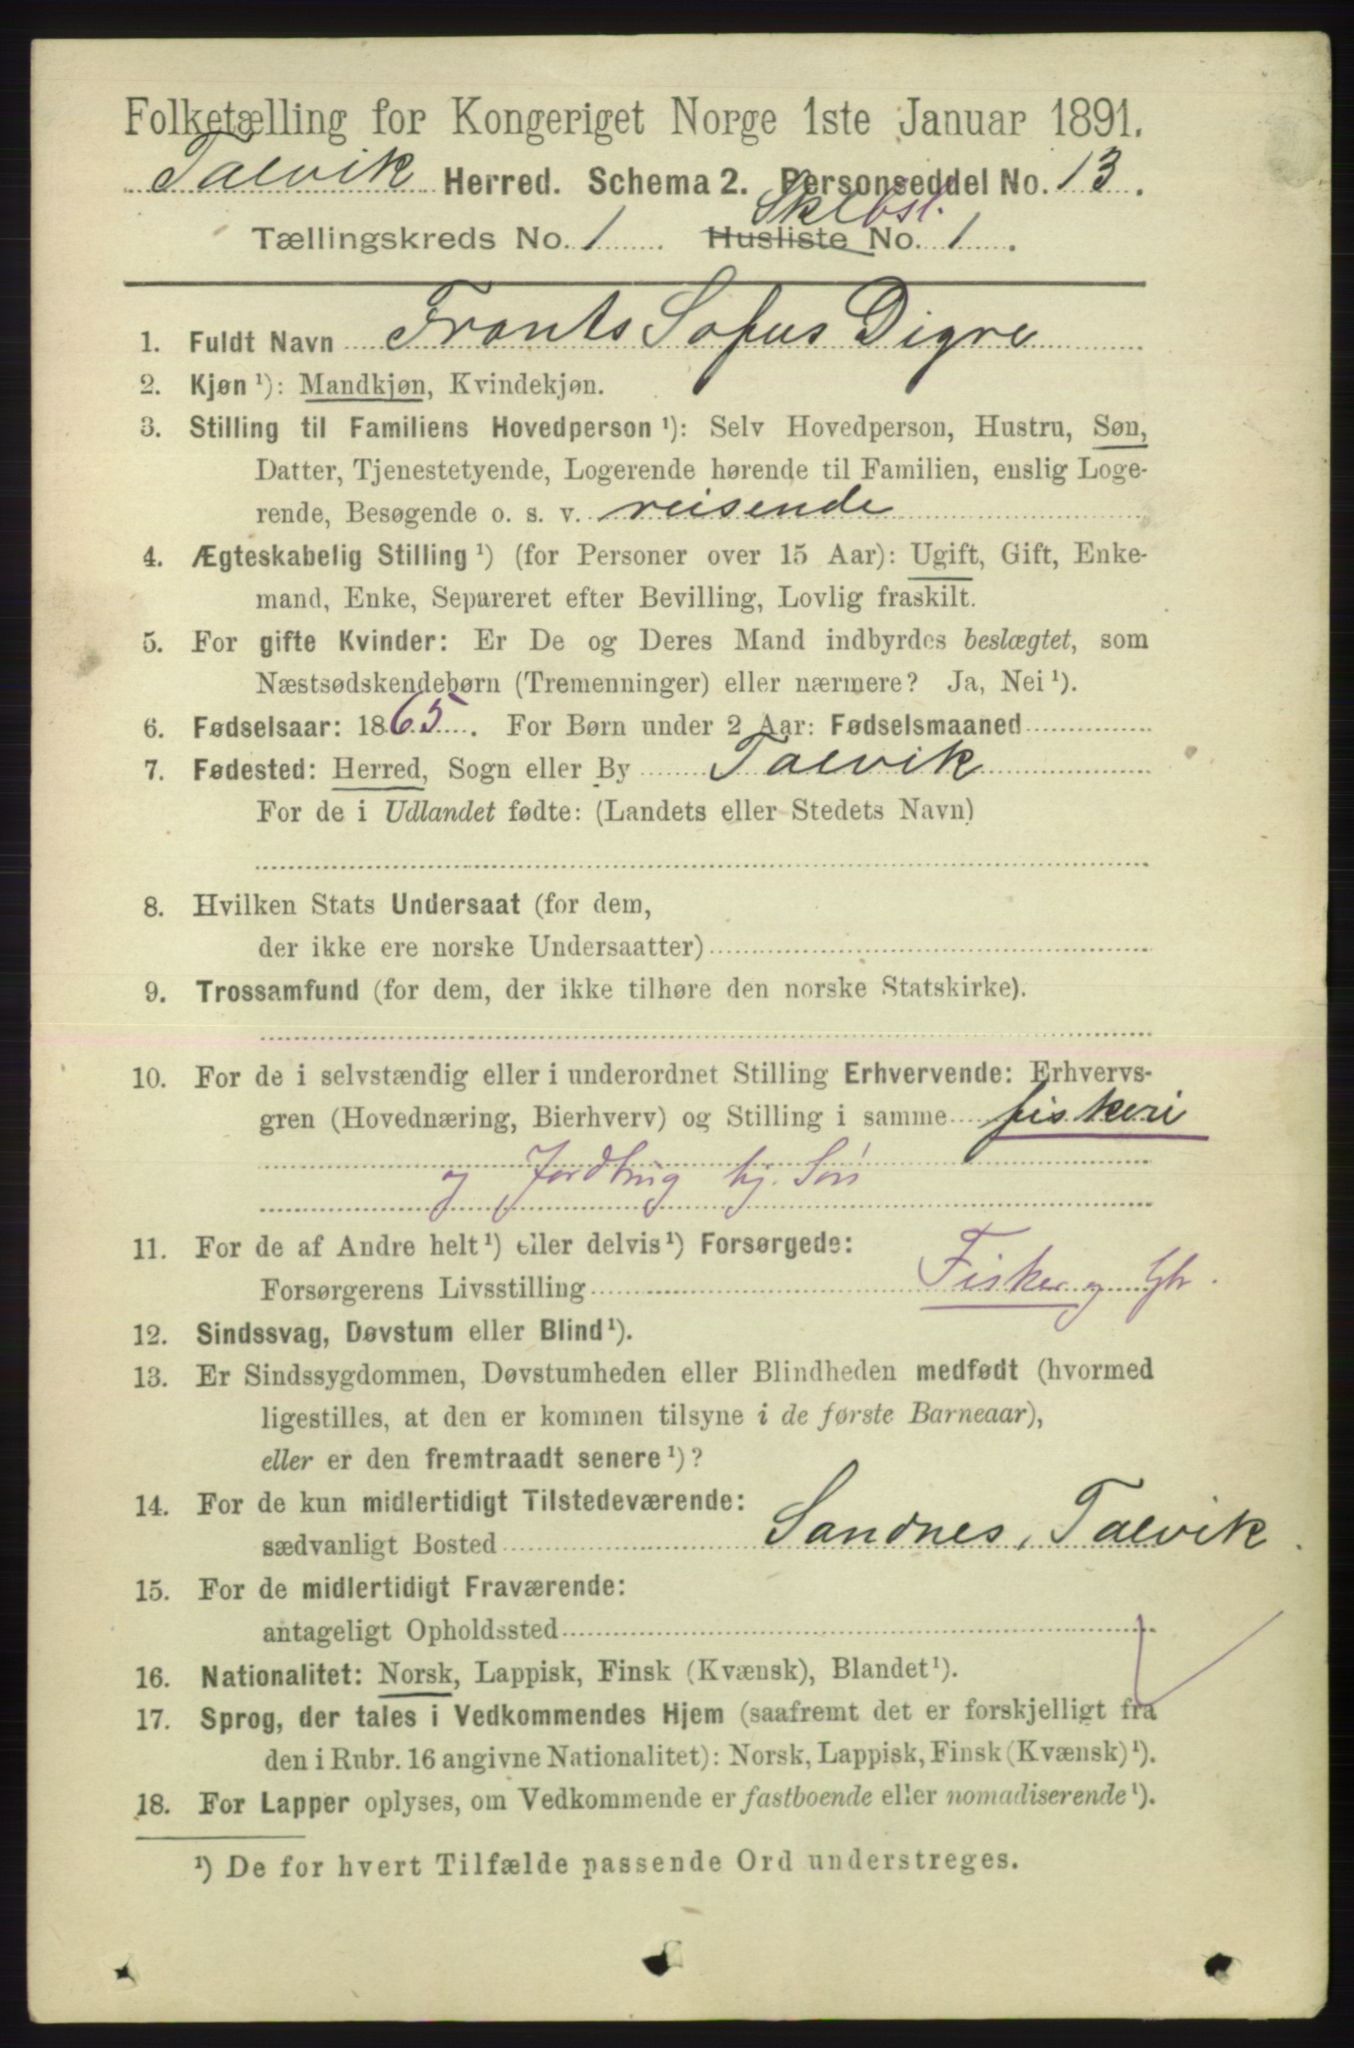 Folketælling for Kongeriget Norge 1ste Januar 1891.
Talvik Herred. Schema 2. Personseddel No. 13.
Tællingskreds No. 1 Husliste No. 1.
1. Fuldt Navn Frants Sofus Digre
2. Kjøn ¹): Mandkjøn, Kvindekjøn.
3. Stilling til Familiens Hovedperson ¹): Selv Hovedperson, Hustru, Søn,
Datter, Tjenestetyende, Logerende hørende til Familien, enslig Loge-
rende, Besøgende o. s. v. reisende
4. Ægteskabelig Stilling ¹) (for Personer over 15 Aar): Ugift, Gift, Enke-
mand, Enke, Separeret efter Bevilling, Lovlig fraskilt.
5. For gifte Kvinder: Er De og Deres Mand indbyrdes beslægtet, som
Næstsødskendebørn (Tremenninger) eller nærmere? Ja, Nei ¹).
6. Fødselsaar: 1865. For Børn under 2 Aar: Fødselsmaaned
7. Fødested: Herred, Sogn eller By Talvik
For de i Udlandet fødte: (Landets eller Stedets Navn)
8. Hvilken Stats Undersaat (for dem,
der ikke ere norske Undersaatter)
9. Trossamfund (for dem, der ikke tilhøre den norske Statskirke).
10. For de i selvstændig eller i underordnet Stilling Erhvervende: Erhvervs-
gren (Hovednæring, Bierhverv) og Stilling i samme fiskeri
og Jordbrug hj. Søn
11. For de af Andre helt ¹) eller delvis ¹) Forsørgede:
Forsørgerens Livsstilling Fisker og Gbr.
12. Sindssvag, Døvstum eller Blind ¹).
13. Er Sindssygdommen, Døvstumheden eller Blindheden medfødt (hvormed
ligestilles, at den er kommen tilsyne i de første Barneaar),
eller er den fremtraadt senere ¹)?
14. For de kun midlertidigt Tilstedeværende:
sædvanligt Bosted Sandnes, Talvik.
15. For de midlertidigt Fraværende:
antageligt Opholdssted
16. Nationalitet: Norsk, Lappisk, Finsk (Kvænsk), Blandet ¹).
17. Sprog, der tales i Vedkommendes Hjem (saafremt det er forskjelligt fra
den i Rubr. 16 angivne Nationalitet): Norsk, Lappisk, Finsk (Kvænsk) ¹).
18. For Lapper oplyses, om Vedkommende er fastboende eller nomadiserende ¹).
¹) De for hvert Tilfælde passende Ord understreges.